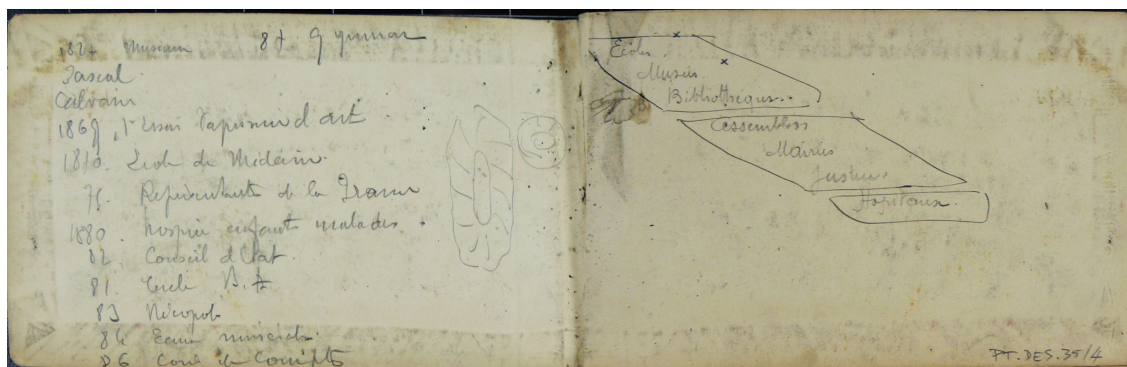 Muséum
87. Gymnase
Pascal
Calvaire
1869, d'art
1870. École de Médecine.
75. Représentants de la France
1880. hospice enfants malades.
82. Conseil d'Etat.
81. Cercle B. A
83 Nécropole
84 Eaux minérales.
86 Cour des Comptes
Ecoles
Musées
Bibliothèques..
Mairies
Justice.
Hôpitaux.
PT.DES.35/4